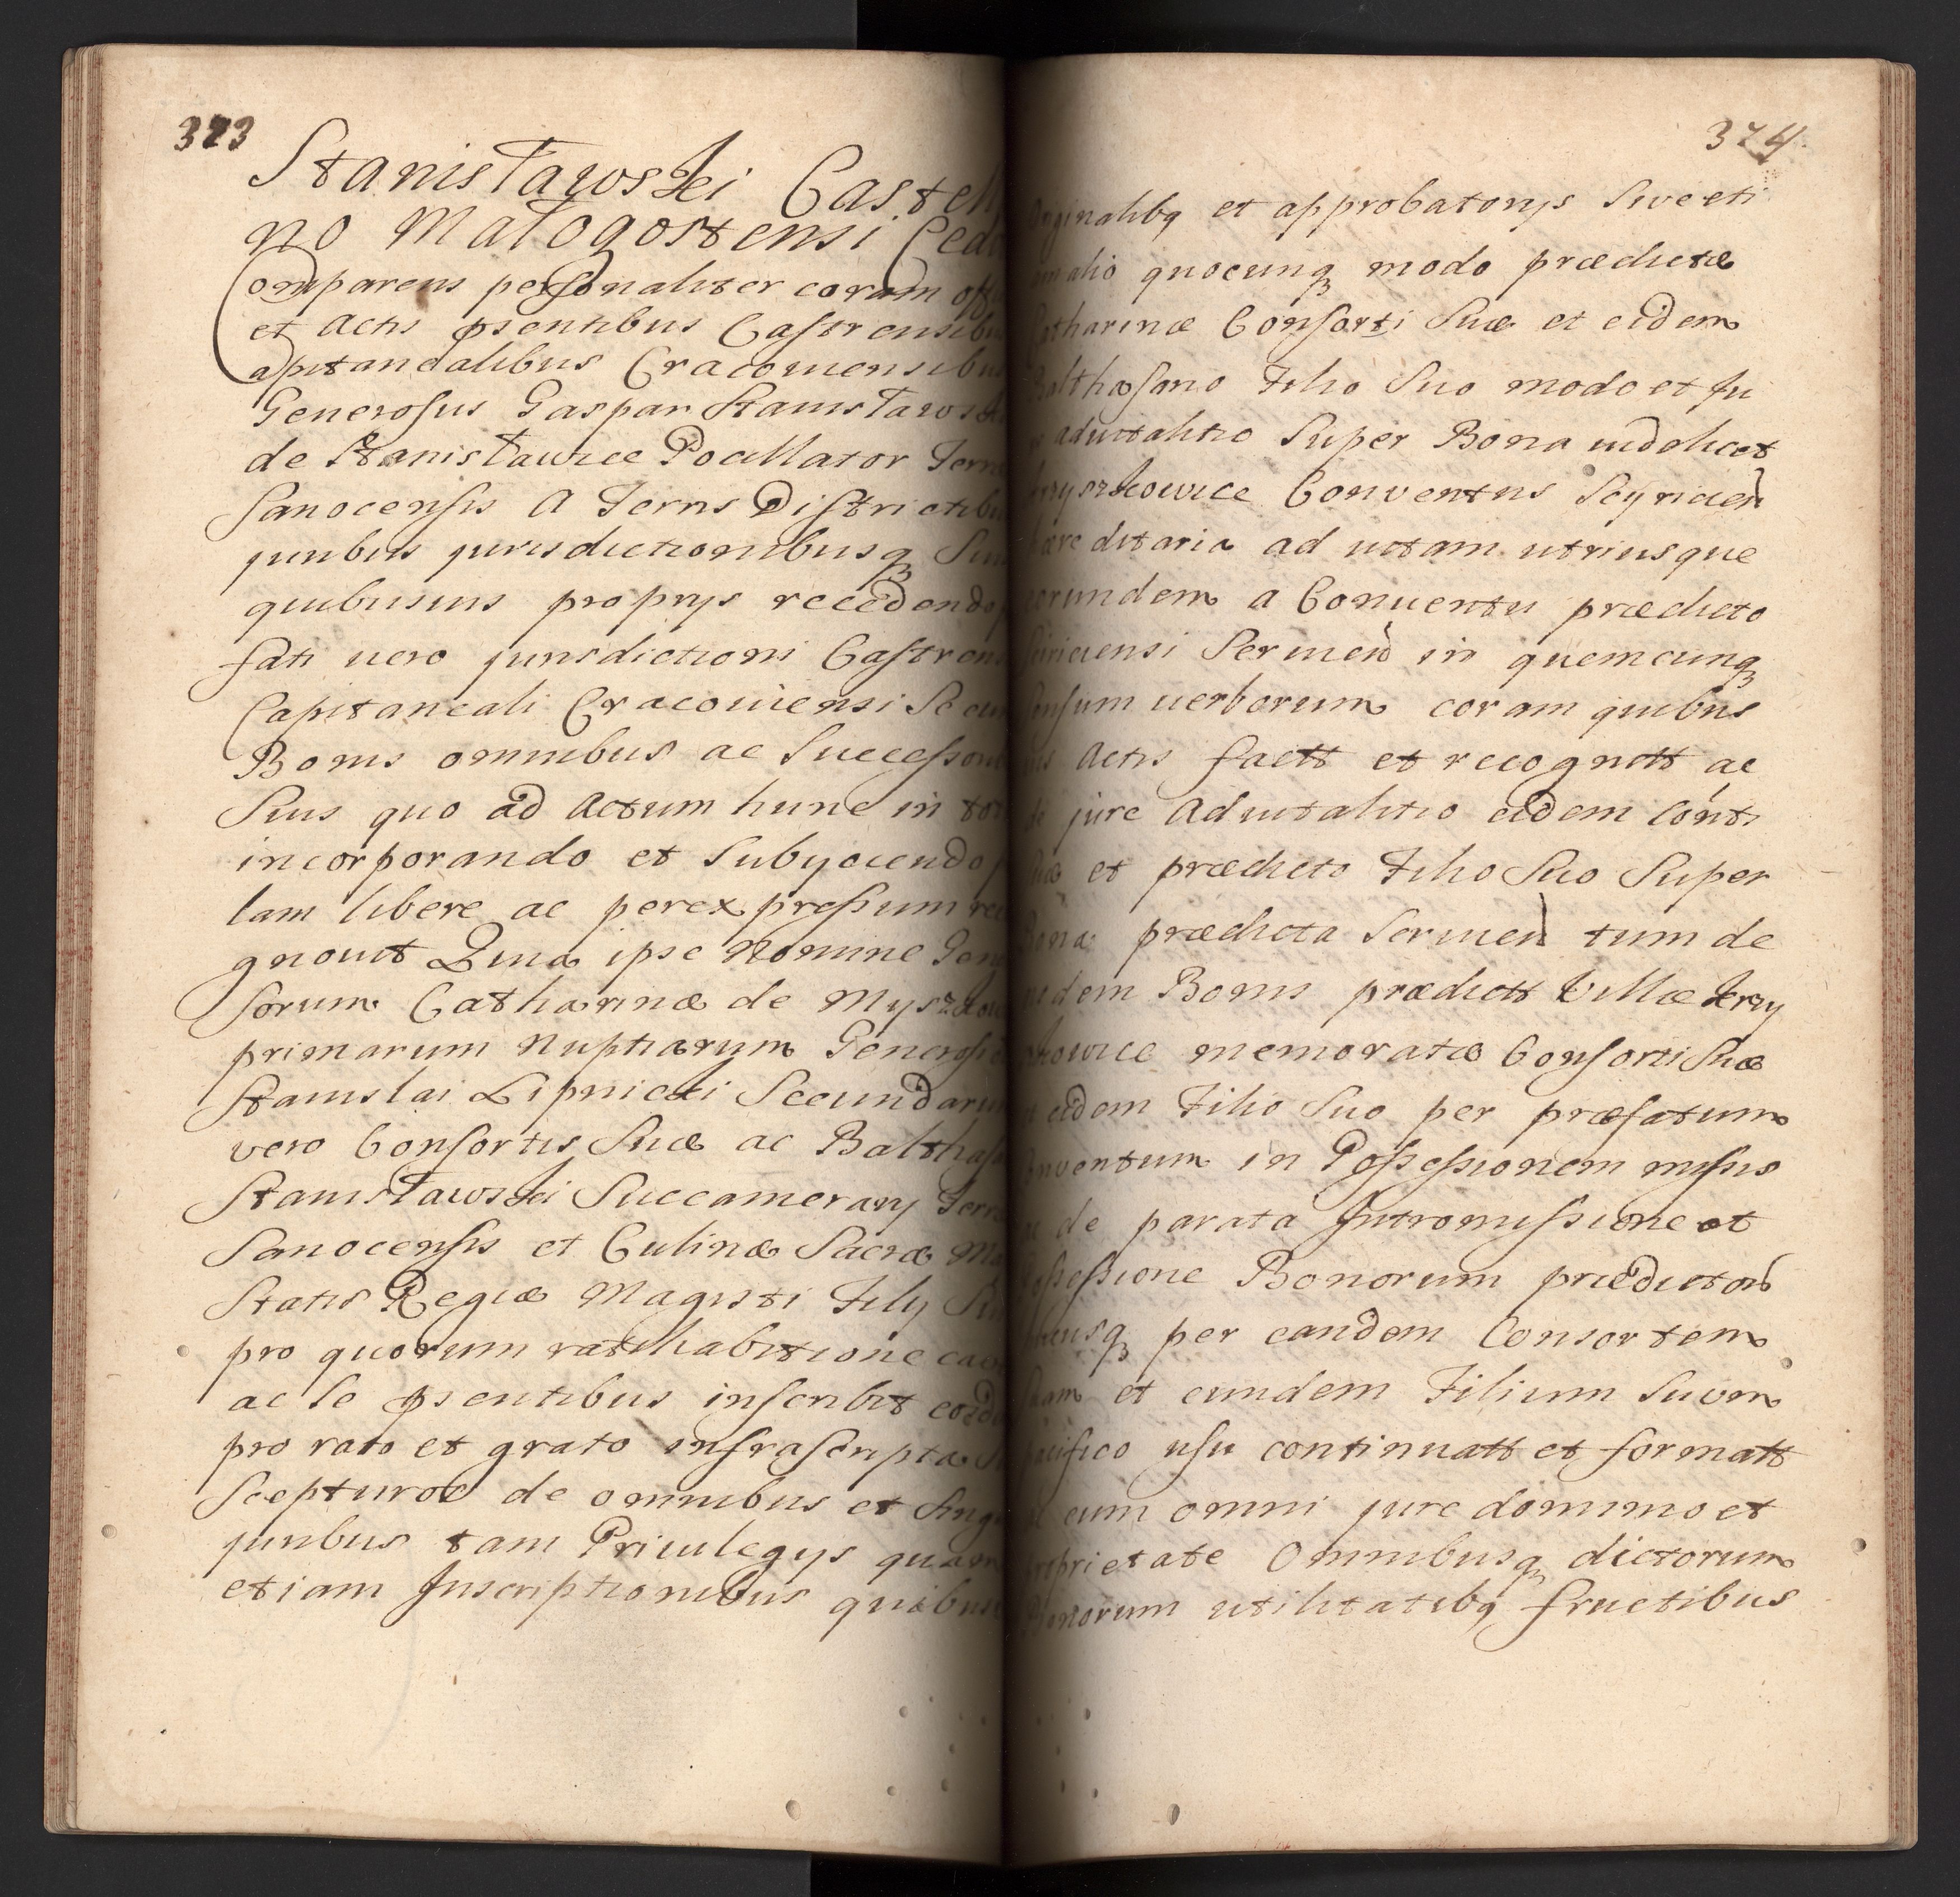 373
Stanisławski Castell
no Małogostensi Ced
Comparens personaliter coram off
et Actis psentibus Castrensibu
apitanealibus Cracouiensibus
Generosus Gaspar Stanisławsk
de Stanisławice Pocillator Terræ
Sanocensis A Terris Districtibu
juribus jurisdictionibusq Sui
quibusuis proprijs recedendo
fati uero jurisdictioni Castrens
Capitaneali Cracouiensi Se cum
Bonis omnibus ac Successori
Suis quo ad Actum hunc in tot
incorporando et Subyciendo p
lam libere ac per expressum rec
gnouit Quia ipse Nomine Gene
sorum Catharinæ de Myszkow
primarum Nuptiarum Generosi
Stanislai Lipnicki Secundarum
vero Consortis Suæ ac Balthasa
Stanisławski Succamerarij Terræ
Sanocensis et Culinæ Sacræ Ma
Statis Regiæ Magistri Filij Sui
pro quorum ratihabitione cau
ac Se psentibus inscribit eosd
pro rato et grato infrascripta S
Scepturos de omnibus et Sing
juribus tam Priuilegijs quam
etiam Inscriptionibus quibus
374
Originalibq et approbatorijs Siue eti
am alio quocunq modo prædictæ
Catharinæ Consorti Suæ et eidem
Balthasaro Filio Suo modo et ju
re aduitalitio Super Bona uidelicet
Krzyszkowice Conventus Scyricien
hæreditaria ad uitam utriusque
eorundem a Conuentu prædicto
Sciriciensi Seruien in quemcunq
Sensum uerborum coram quibus
uis Actis factt et recognitt ac
de jure Aduitalitio eidem Conti
Suæ et prædicto Filio Suo Super
Bona prædicta Seruien tum de
iisdem Bonis prædictt Villæ Krzy
szkowice memoratæ Consorti Suæ
et eidem Filio Suo per præfatum
Conventum in Possessionem missis
ac de parata Intromissione et
Possessione Bonorum prædictor
hucusq per eandem Consortem
Suam et eundem Filium Suum
pacifico usu continuatt et formatt
ac cum omni jure dominio et
proprietate Omnibusq dictorum
Bonorum utilitatibq fructibus